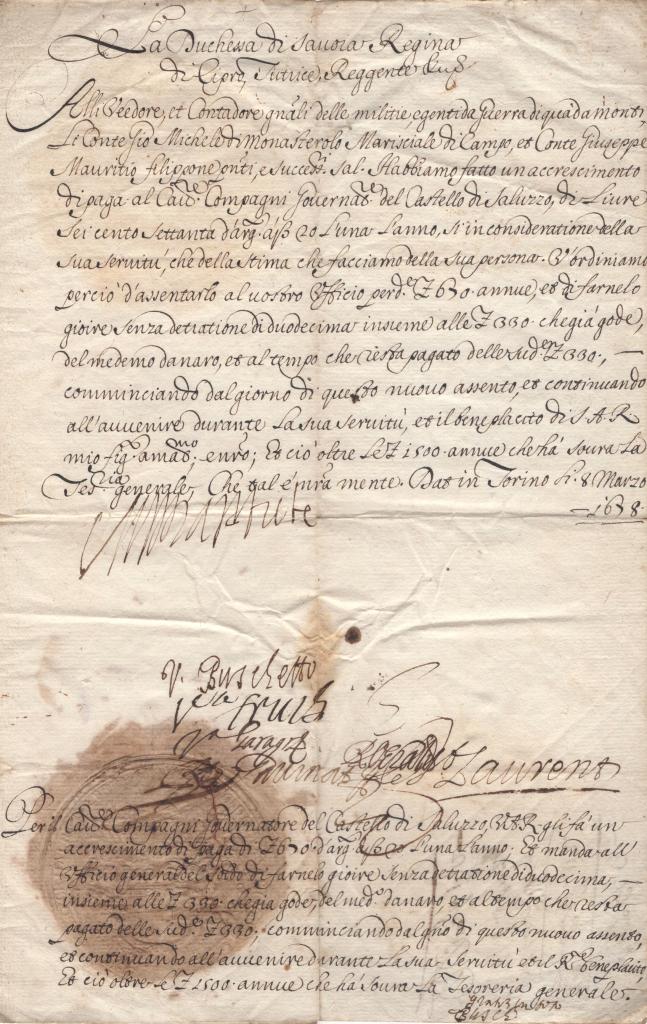 La Duchessa di Savoia Regina
di Cipro, Tutrice, Reggente &c.
Alli Veedore, et Contadore gnāli delle militie, e genti da guerra di quà da monti,
Li Conte Gio Michele di Monasterolo Marisciale di Campo, et Conte Giuseppe
Mauritio filippone ponti, e success.ri sal. Habbiamo fatto un accrescimento
di paga al Cau.re Compagni Gouernat.e del Castello di Saluzzo, di Liure
Sei cento settanta d'arg. à ß 20 L'una L'anno, si in consideratione della
sua seruitù, che della stima che facciamo della sua persona. V'ordiniamo
perciò d'assentarlo al vostro Vfficio per d.e £ 670 annue, et di farnelo
gioire senza detratione di duodecima insieme alle £ 330 che già gode,
del medemo danaro, et al tempo che resta pagato delle sud.e £ 330, —
comminciando dal giorno di questo nuovo assento, et continuando
all'auuenire durante La sua Seruitù, et il beneplacito di S.A.R.
mio fig.o amat.mo, enr̃o; Et ciò oltre Le £ 1500 annue che hà soura La
Tes.ria generale, Che tal è nr̃a mente. Dat in Torino li 8 Marzo
— 1678
V. Buschetto
V.a
V.a
Laurent
Per il Cau.re Compagni Gouernatore del Castello di Saluzzo, V.A.R. gli fà un
accrescimento di paga di £ 670 d'arg. à ß 20 L'una L'anno; Et manda all'
Vfficio general del Soldo di farnelo gioire senza detratione di duodecima, —
insieme alle £ 330 che già gode, del med.o danaro, et al tempo che resta
pagato delle sud.e £ 330, comminciando dal gno di questo nuovo assento,
et continuando all'auuenire durante La sua Seruitù et il R.o beneplacito,
Et ciò oltre Le £ 1500 annue che hà soura La Tesoreria generale.